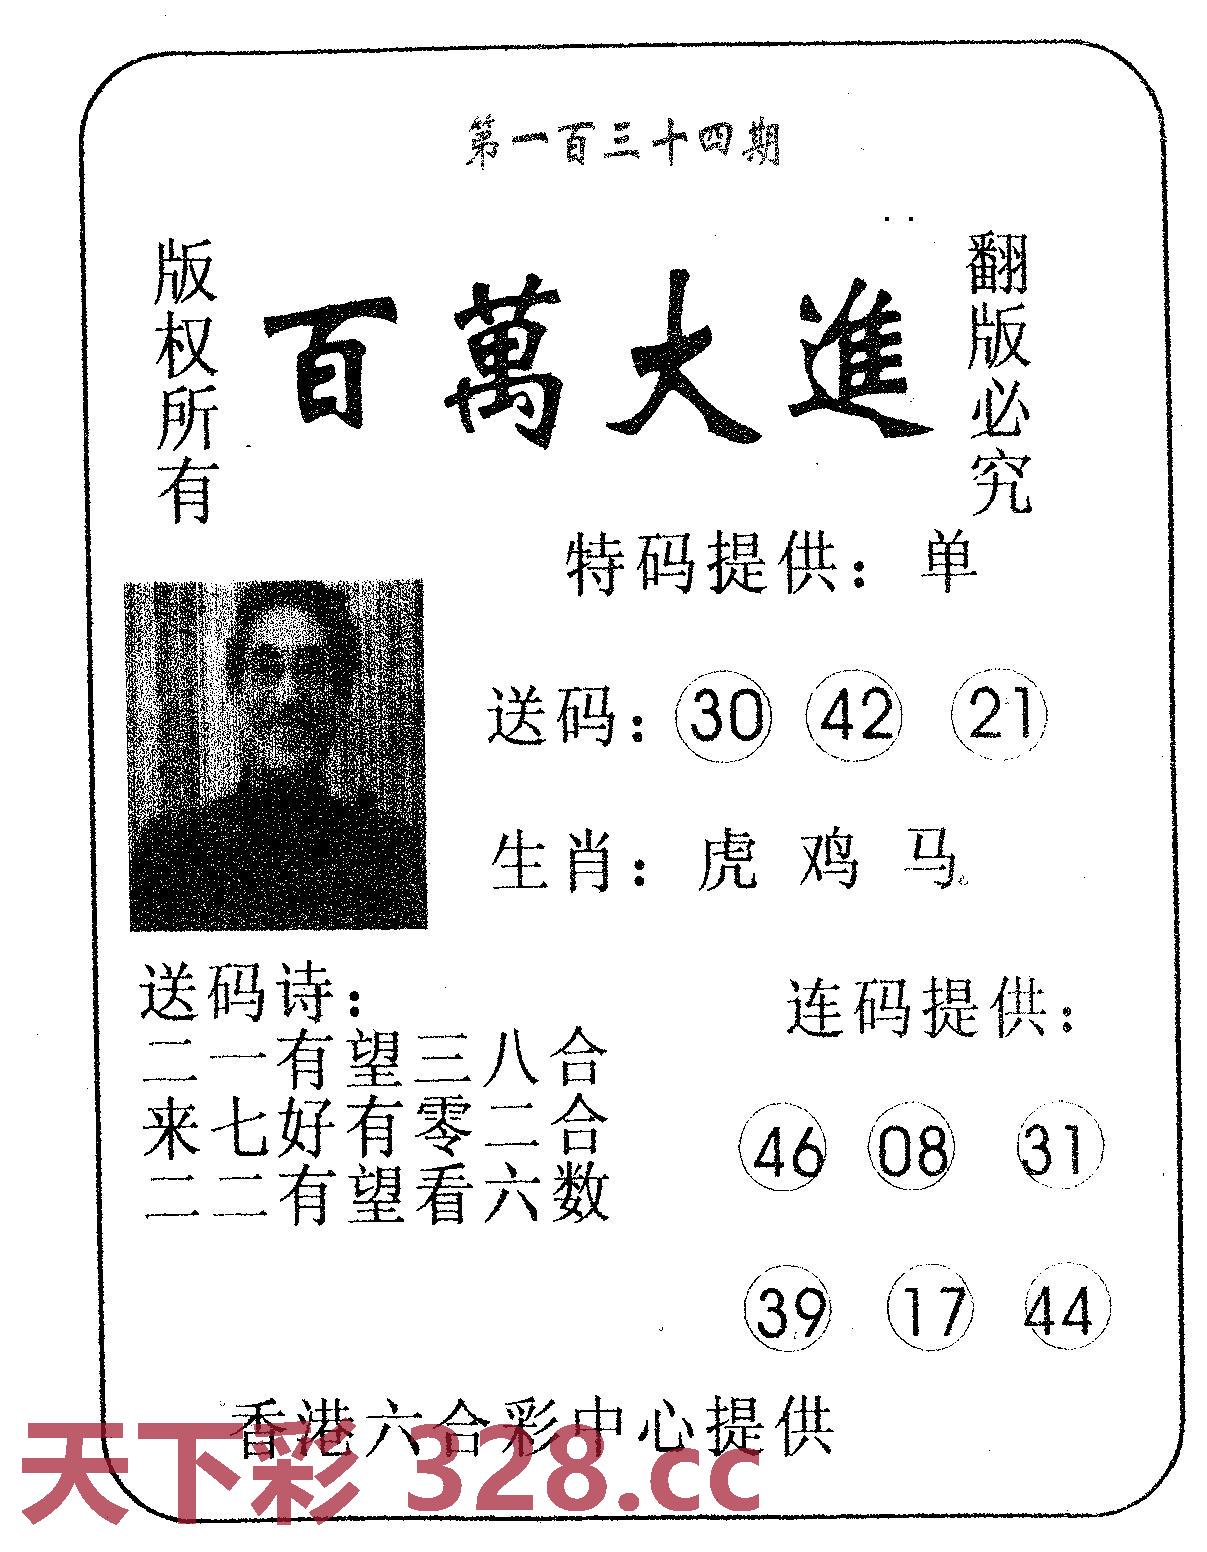 第一百三十四期
版权所有
百萬大進
翻版必究
特码提供：单
送码：30 42 21
生肖：虎 鸡 马
送码诗：
二一有望三八合
来七好有零二合
二二有望看六数
连码提供：
46 08 31
39 17 44
香港六合彩中心提供
天下彩 328.cc